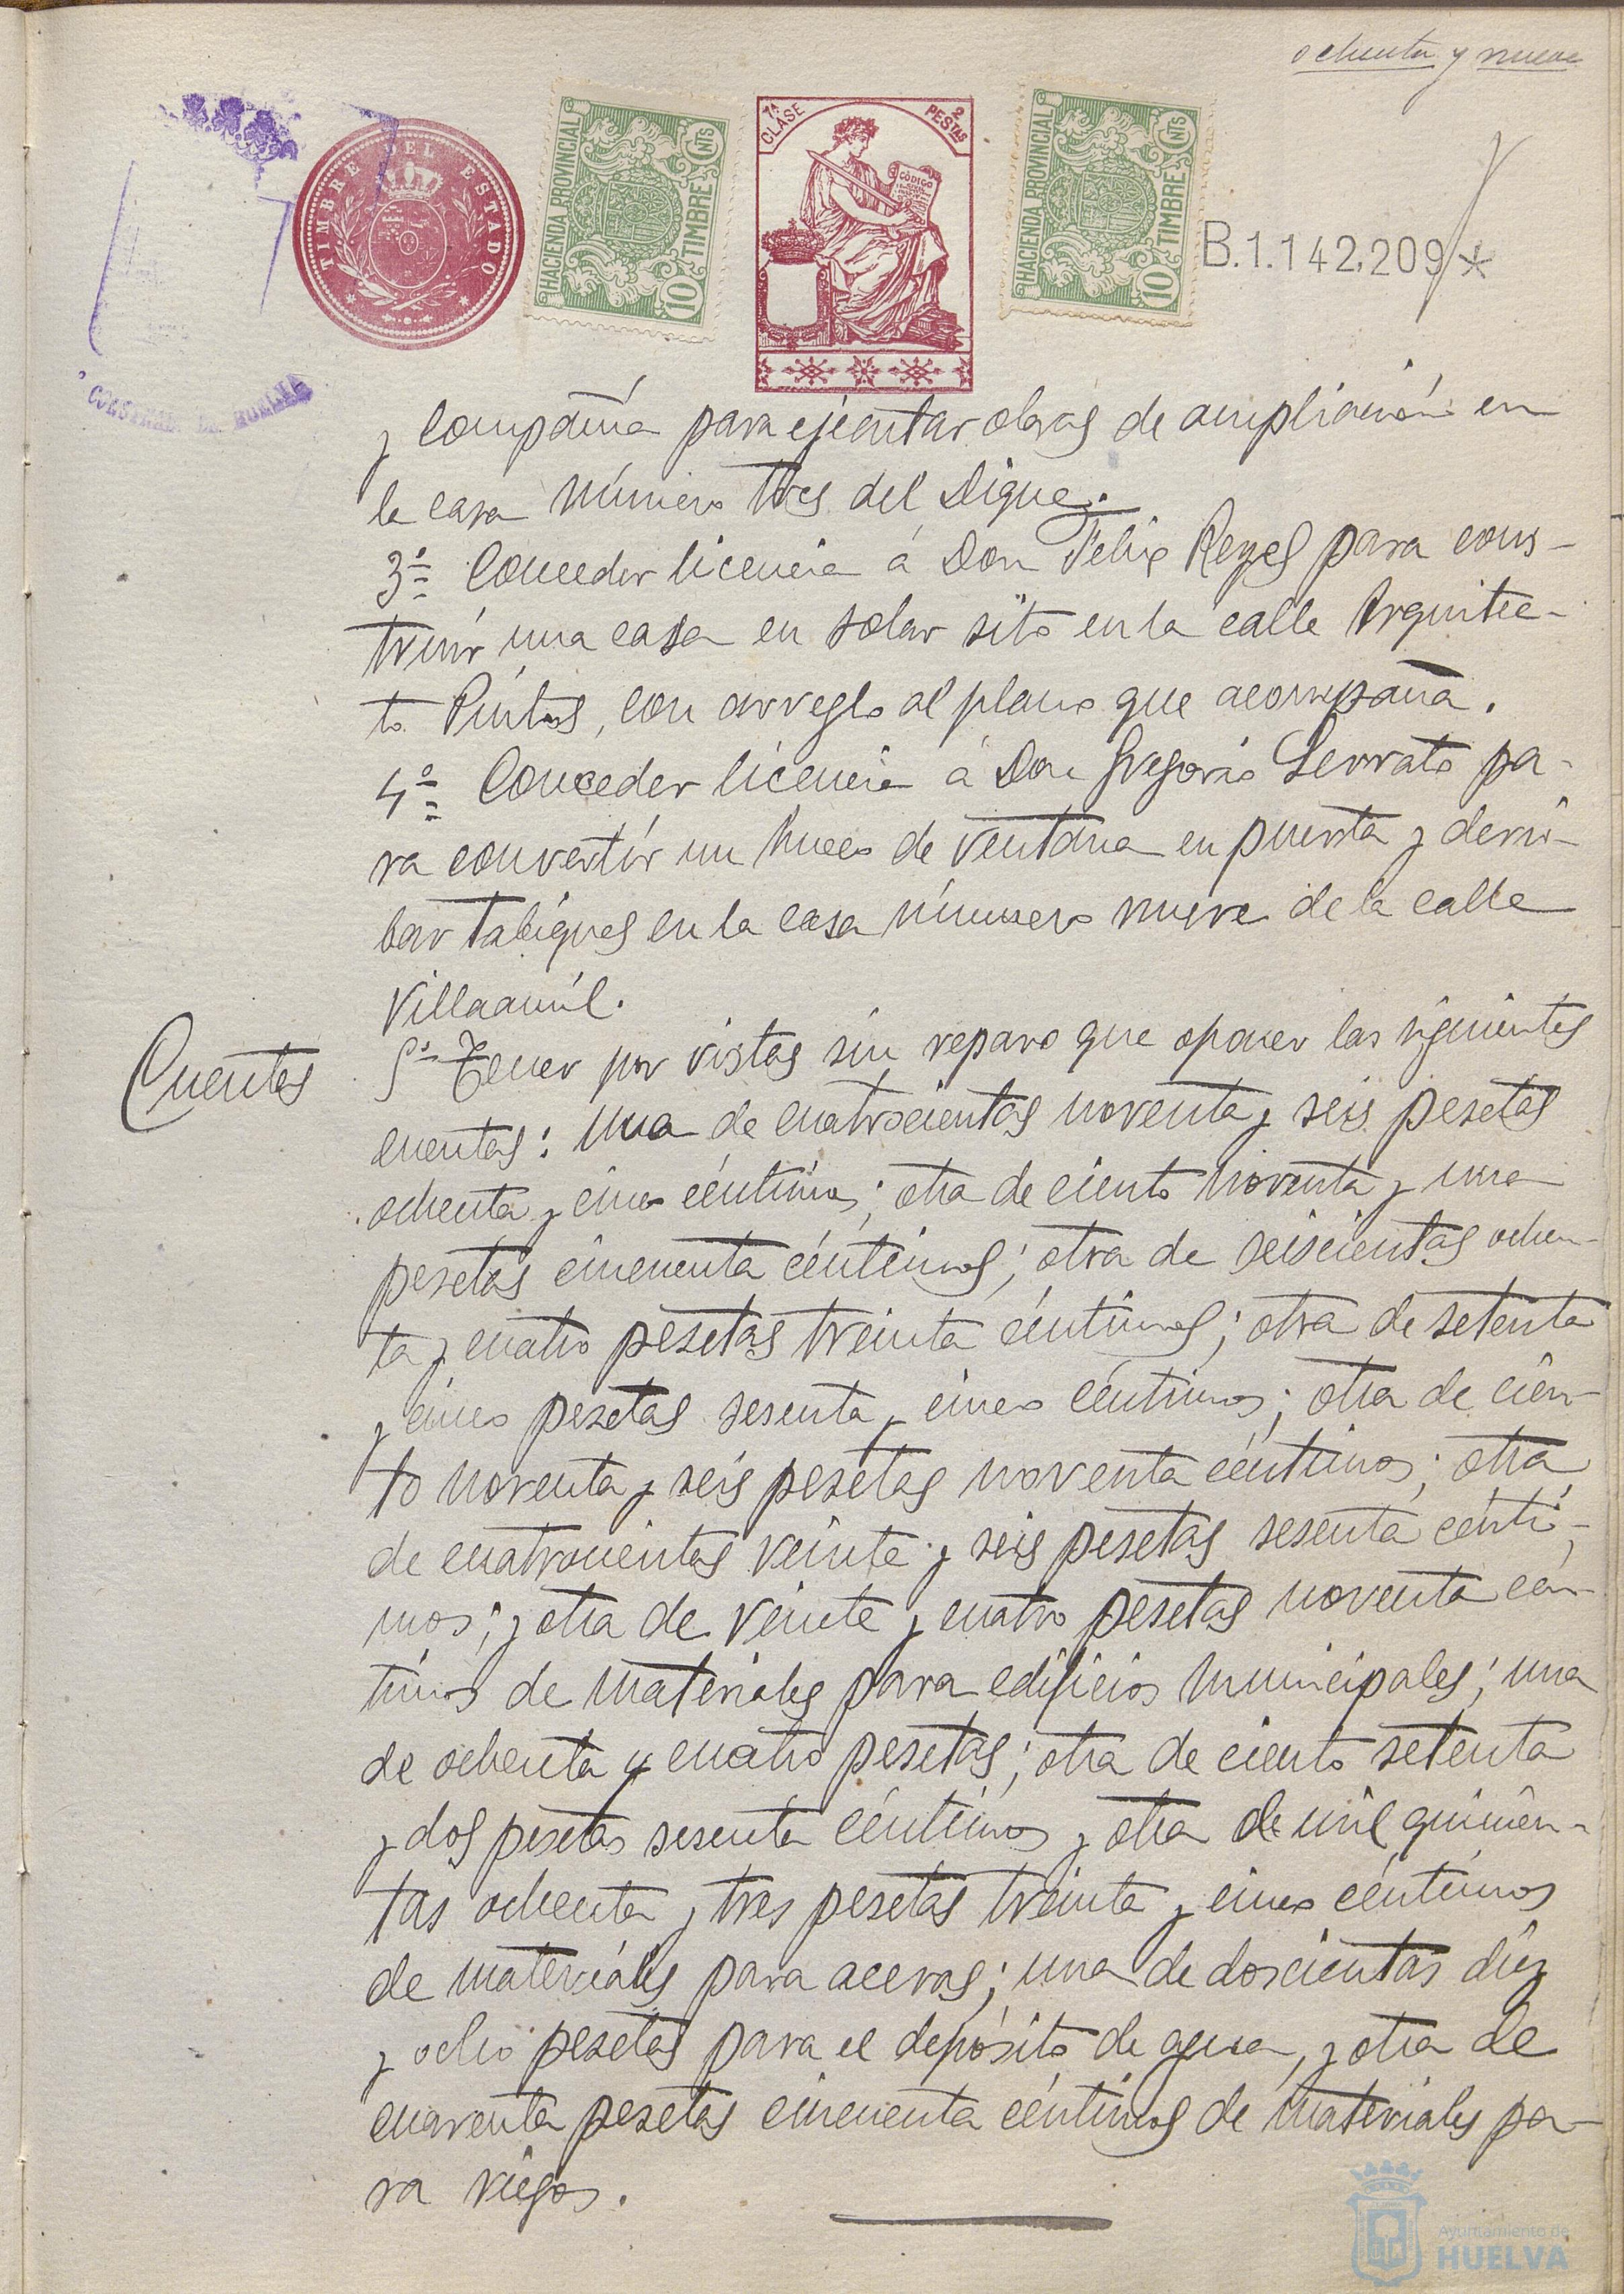 ochenta y nueve
TIMBRE DEL ESTADO
HACIENDA PROVINCIAL
10 TIMBRE CNTS
1ª CLASE
2 PESTAS
CÓDIGO
HACIENDA PROVINCIAL
10 TIMBRE CNTS
B.1.142,209*
y Compañía para ejecutar obras de ampliación en
la casa número tres del Dique.
3º Conceder licencia á Don Felix Reyes para cons-
truir una casa en solar sito en la calle Arquitec-
to Pintos, con arreglo al plano que acompaña.
4º Conceder licencia á Don Gregorio Serrato pa-
ra convertir un hueco de ventana en puerta y derri-
bar tabiques en la casa número nueve de la calle
Villaamil.
Cuentas
5º Tener por vistas sin reparo que oponer las siguientes
cuentas: una de cuatrocientas noventa y seis pesetas
ochenta y cinco céntimos; otra de ciento noventa y una
pesetas cincuenta céntimos; otra de seiscientas ochen-
ta y cuatro pesetas treinta céntimos; otra de setenta
y cinco pesetas sesenta y cinco céntimos; otra de cien-
to noventa y seis pesetas noventa céntimos; otra
de cuatrocientas veinte y seis pesetas sesenta cénti-
mos; y otra de veinte y cuatro pesetas noventa cén-
timos de materiales para edificios municipales; una
de ochenta y cuatro pesetas; otra de ciento setenta
y dos pesetas sesenta céntimos y otra de mil quinien-
tas ochenta y tres pesetas treinta y cinco céntimos
de materiales para aceras; una de doscientas diez
y ocho pesetas para el depósito de agua, y otra de
cuarenta pesetas cincuenta céntimos de materiales pa-
ra riegos.
Ayuntamiento de
HUELVA